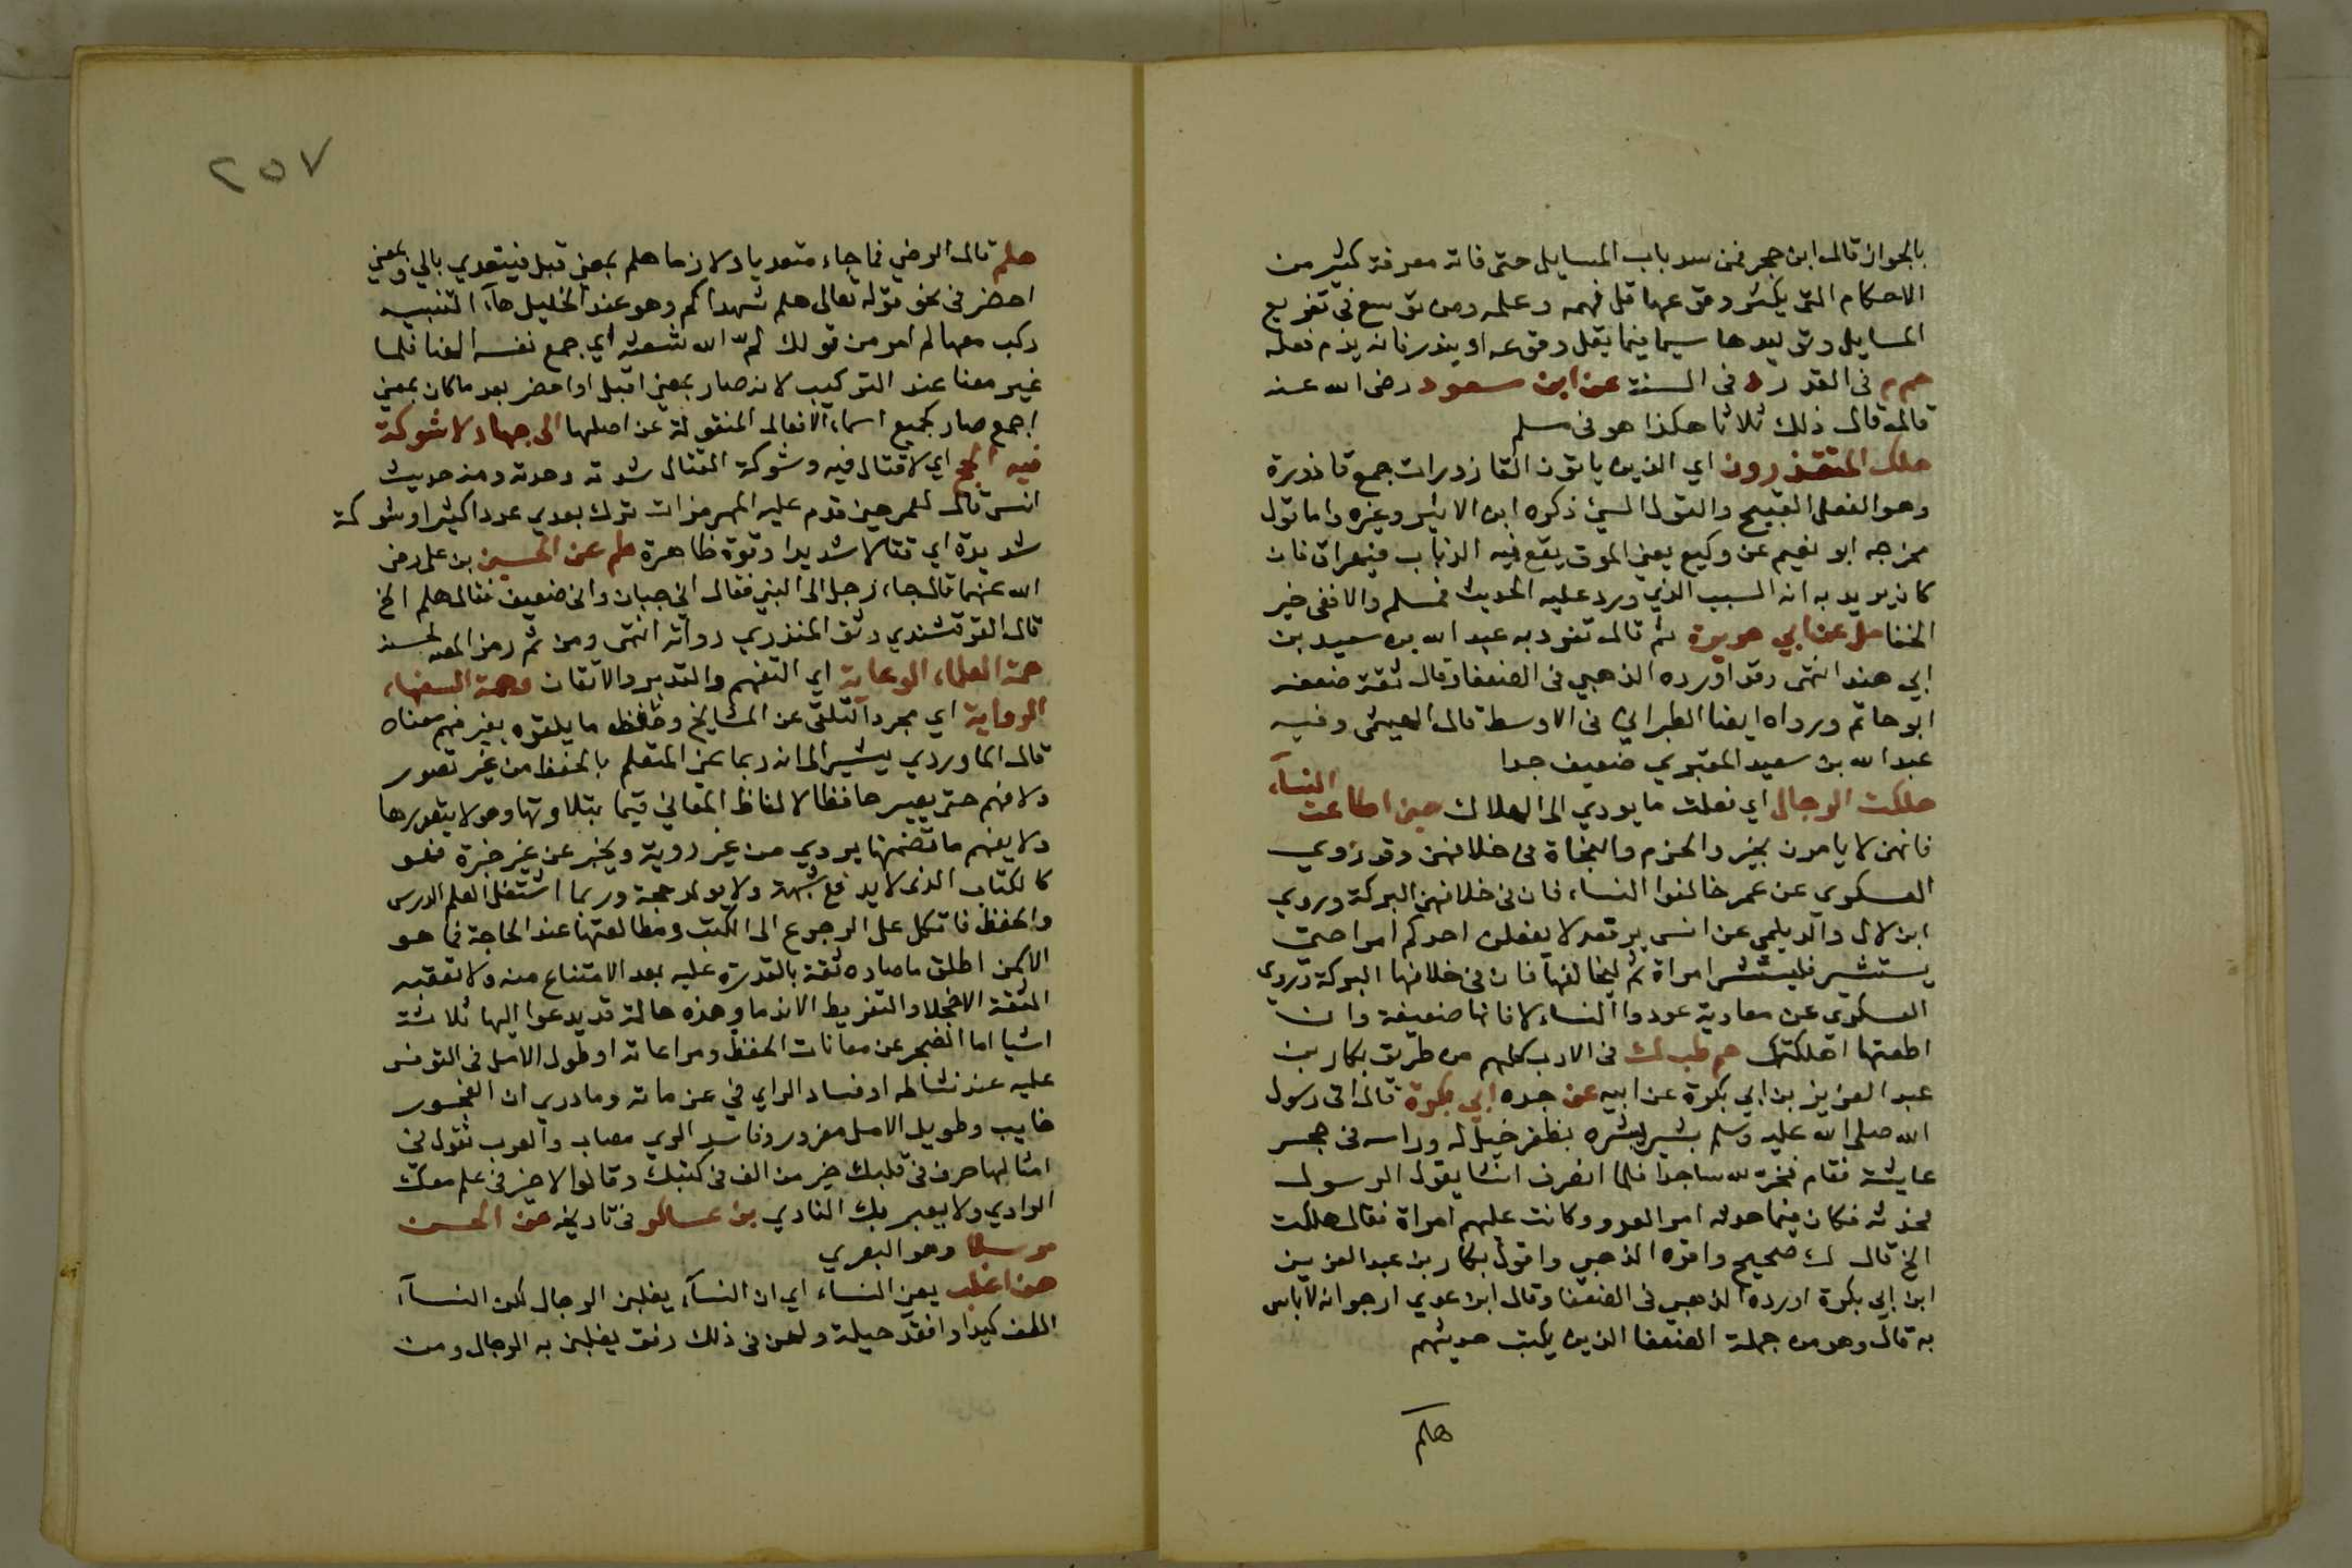 بالجواز قال ابن حجر فمن سد باب المسايل حتى فاته معرفة كثير من
الاحكام التي يكثر وقوعها قل فهمه وعلمه ومن توسع في تفريع
المسايل وتوليدها سيما فيما يقل وقوعه او يندر فانه يذم فعله
حم م في القدر د في السنة عن ابن مسعود رضي الله عنه
قال قال ذلك ثلاثا هكذا هو في مسلم
هلك المتقذرون اي الذين ياتون القاذورات جمع قاذورة
وهو الفعل القبيح والقول السيئ ذكره ابن الاثير وغيره واما قول
مخرجه ابو نعيم عن وكيع يعني المرق يقع فيه الذباب فيهراق فان
كان يريد به انه السبب الذي ورد عليه الحديث فمسلم والا ففي خير
الخفا حل عن ابي هريرة ثم قال تفرد به عبد الله بن سعيد بن
ابي هند انتهى وقد اورده الذهبي في الضعفا وقال ثقة ضعفه
ابو حاتم ورواه ايضا الطبراني في الاوسط قال الهيثمي وفيه
عبد الله بن سعيد المقبري ضعيف جدا
هلكت الرجال اي فعلت ما يودي الى الهلاك حين اطاعت النسآء
فانهن لا يامرن بخير والحزم والنجاة في خلافهن وقد روي
العسكري عن عمر خالفوا النساء فان في خلافهن البركة وروي
ابن لال والديلمي عن انس يرفعه لا يفعلن احدكم امرا حتى
يستشير فليستشر امراة ثم ليخالفها فان في خلافها البركة وروى
العسكري عن معاوية عودوا النساء لا فانها ضعيفة وان
اطعتها اهلكتك حم طب ك في الادب كلهم من طريق بكار بن
عبد العزيز بن ابي بكرة عن ابيه عن جده ابي بكرة قال اتى رسول
الله صلى الله عليه وسلم بشير يبشره بظفر خيل له وراسه في حجر
عايشة فقام فخر لله ساجدا فلما انصرف انشا يقول الرسول
فحدثه فكان فيما حدثه امر العدو وكانت عليهم امراة فقال هلكت
الخ قال ك صحيح واقره الذهبي واقول بكار بن عبد العزيز
ابن ابي بكرة اورده الذهبي في الضعفا وقال ابن عدي ارجو انه لاباس
به قال وهو من جملة الضعفا الذين يكتب حديثهم
هلم
٢٥٧
هلم قال الرضي فما جاء متعديا ولازما هلم بمعنى قبل فيتعدي بالي وبمعني
احضر في نحو قوله تعالى هلم شهداكم وهو عند الخليل هآء التنبيه
ركب معها لم امر من قولك لم الله شعثه اي جمع نفسه الينا فلما
غير معنا عند التركيب لانه صار بمعني اقبل او احضر بعد ما كان بمعني
اجمع صار كجميع اسماء الافعال المنقولة عن اصلها الى جهاد لا شوكة
فيه الحج اي لا قتال فيه وشوكة القتال شدته وحدته ومنه حديث
انس قال لعمر حين قدم عليه الهرمزان ترك بعدي عدوا كثيرا وشوكة
شديدة اي قتالا شديدا وقوة ظاهرة طب عن الحسين بن علي رضي
الله عنهما قال جاء رجل الى النبي فقال اني جبان واني ضعيف فقال هلم الخ
قال القرقشندي وثق المنذري رواته انتهى ومن ثم رمز المص لحسنه
همة العلماء الرعاية اي التفهم والتدبر والاتقان وهمة السفهاء
الرواية اي مجرد التلقي عن المشايخ وحفظ ما يلقوه بغير فهم معناه
قال الماوردي يشير الى انه ربما عني المتعلم بالحفظ من غير تصور
ولا فهم حتى يصير حافظا لالفاظ المعاني قيما بتلاوتها وهو لا يتصورها
ولا يفهم ما تضمنها يروي من غير روية ويخبر عن غير خبرة فهو
كالكتاب الذي لا يدفع شبهة ولا يولد حجة وربما اشتغل العلم الدرس
والحفظ فاتكل على الرجوع الى الكتب ومطالعتها عند الحاجة فما هو
الا كمن اطلق ما صاده ثقة بالقدرة عليه بعد الامتناع منه ولا تعقبه
الثقة الا خجلا والتفريط الا ندما وهذه حالة قد يدعوا اليها ثلاثة
اشيا اما الضجر عن معانات الحفظ ومراعاته او طول الامل في التوفر
عليه عند نشاطه او فساد الراي في عزماته وما دري ان الضجور
خايب وطويل الامل مغرور وفاسد الراي مصاب والعرب تقول في
امثالها حرف في قلبك خير من الف في كتبك وقالوا لا خير في علم معك
الوادي ولا يعبر بك النادي بن عساكر في تاريخه عن الحسن
مرسلا وهو البصري
هن اغلب يعني النساء اي ان النسآء يغلبن الرجال لان النسآء
الطف كيدا وانفذ حيلة ولهن في ذلك رفق يغلبن به الرجال ومن